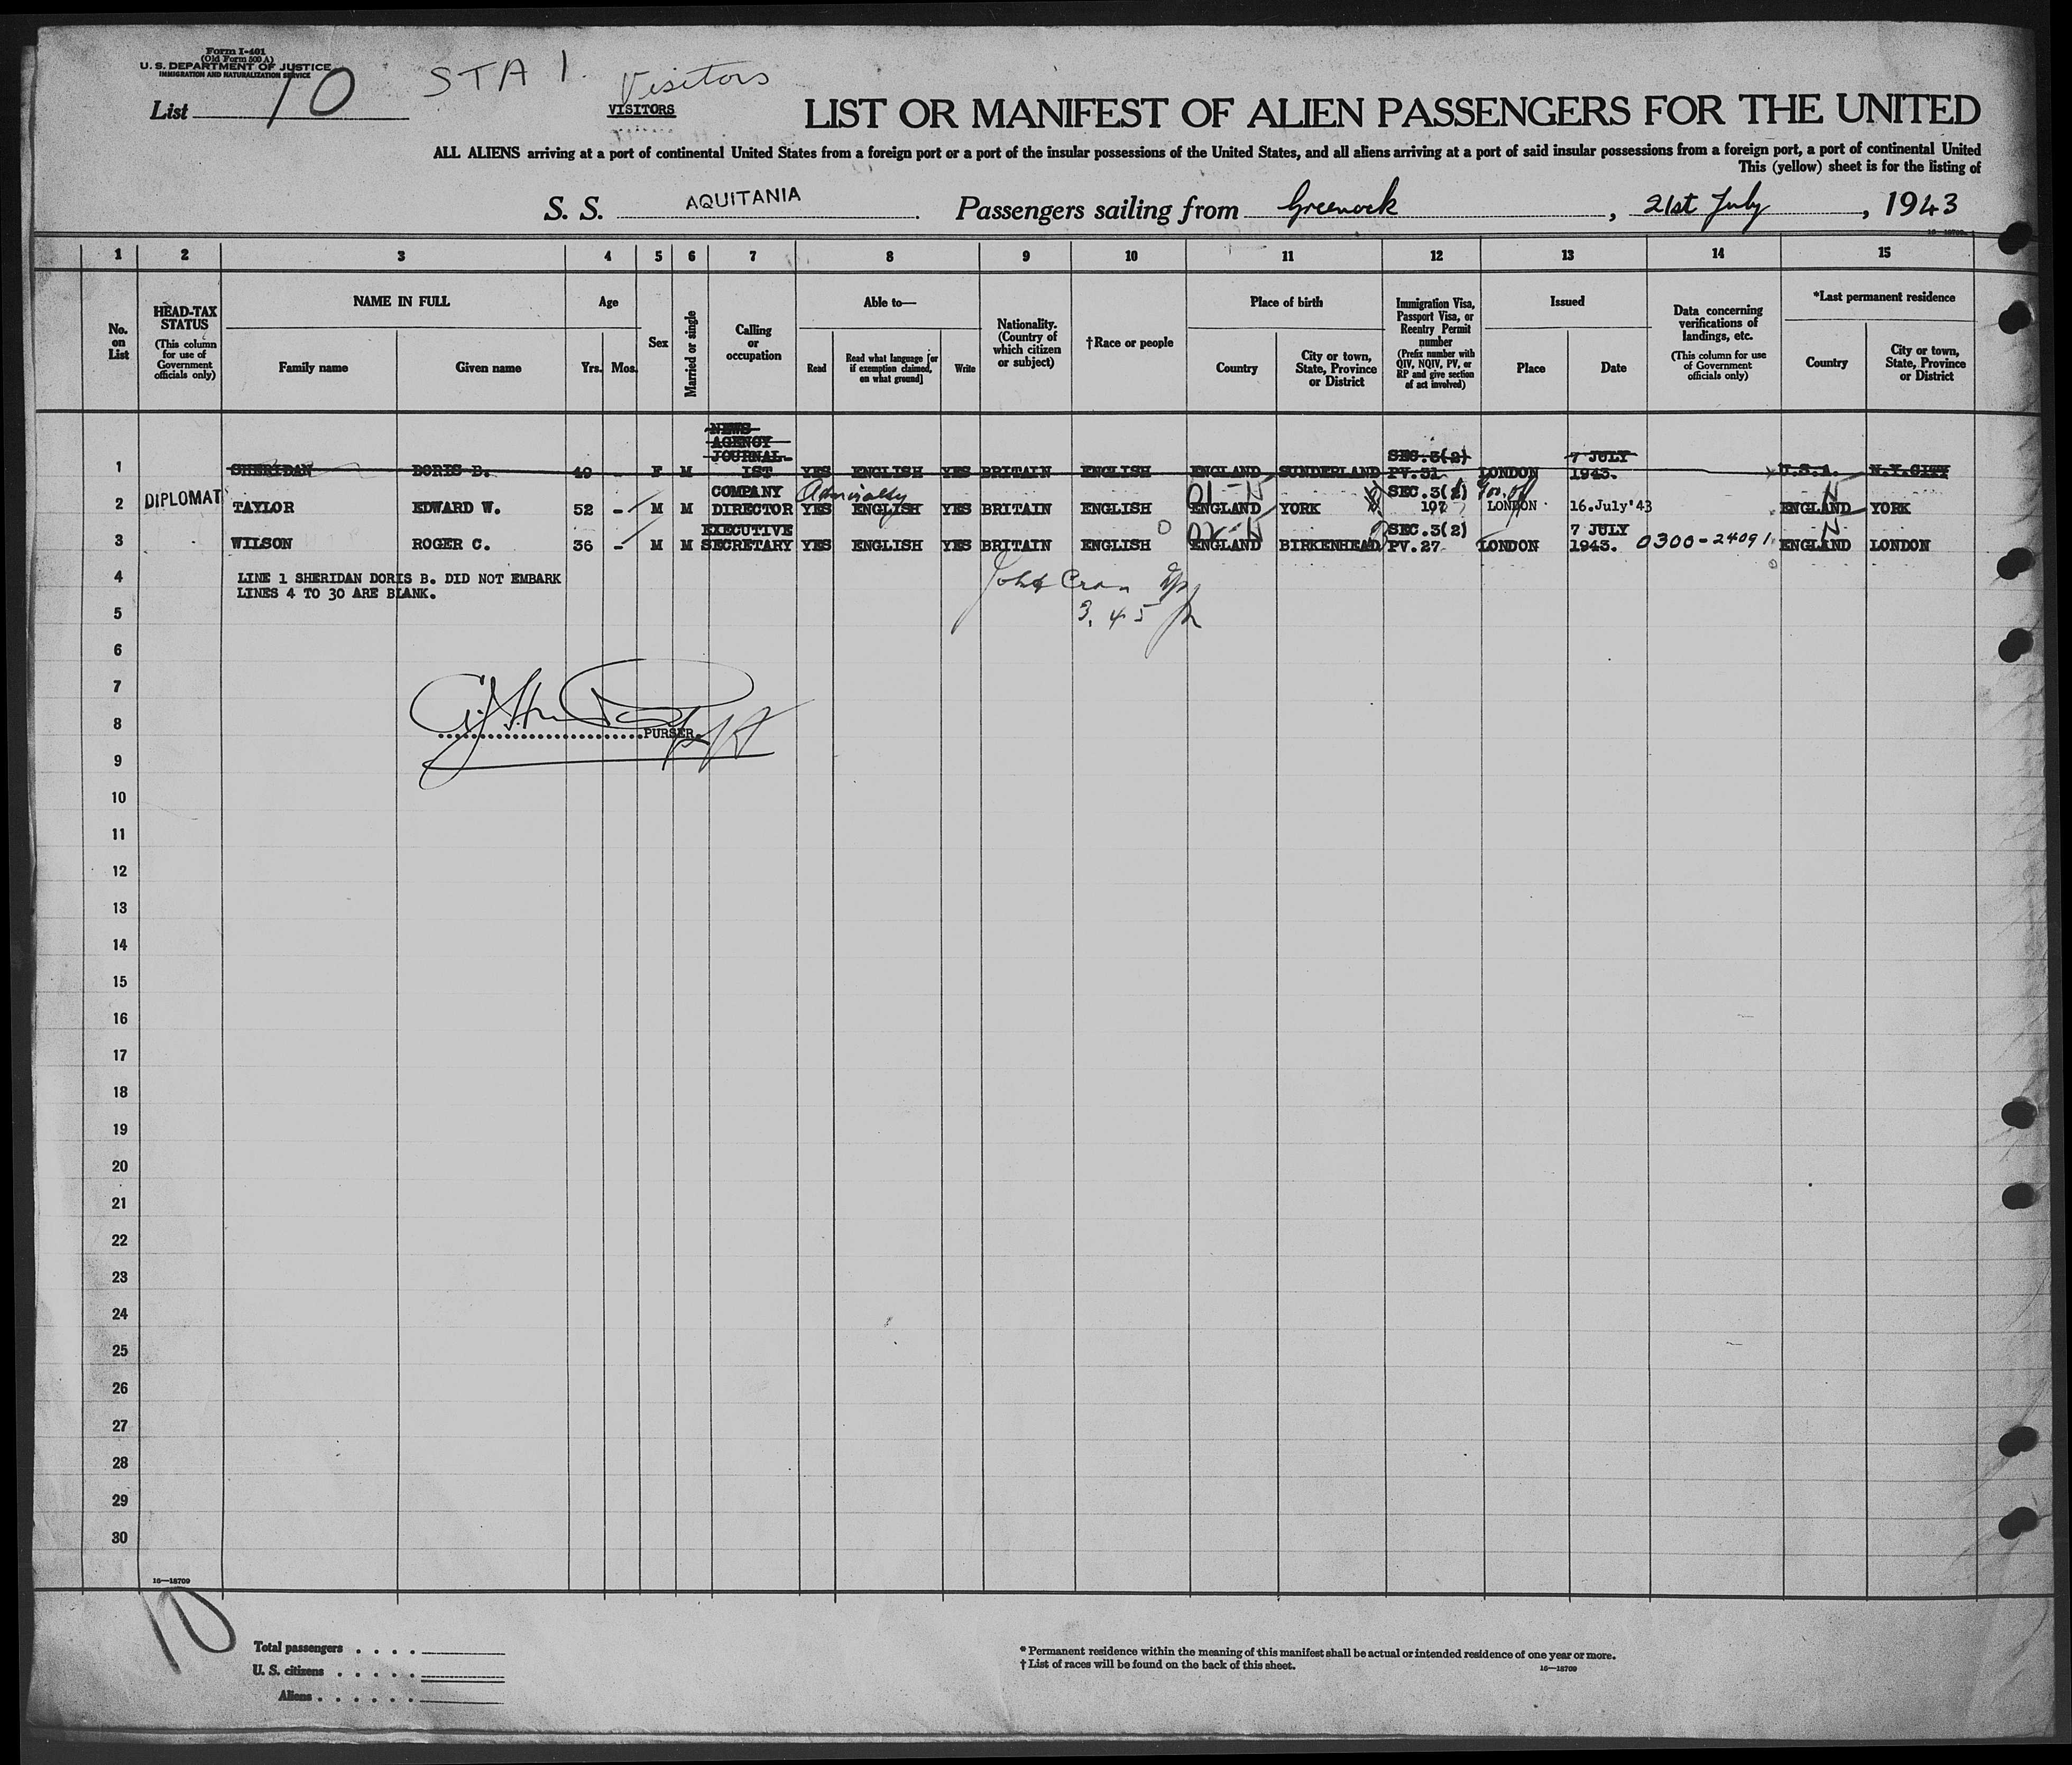 Form I-401
(Old Form 500 A)
U. S. DEPARTMENT OF JUSTICE
IMMIGRATION AND NATURALIZATION SERVICE
List 10
STA 1.
Visitors
VISITORS
LIST OR MANIFEST OF ALIEN PASSENGERS FOR THE UNITED
ALL ALIENS arriving at a port of continental United States from a foreign port or a port of the insular possessions of the United States, and all aliens arriving at a port of said insular possessions from a foreign port, a port of continental United
This (yellow) sheet is for the listing of
S. S. AQUITANIA Passengers sailing from Greenock, 21st July, 1943
1 2 3 4 5 6 7 8 9 10 11 12 13 14 15
No. on List
HEAD-TAX STATUS
(This column for use of Government officials only)
NAME IN FULL
Family name Given name
Age
Yrs. Mos.
Sex
Married or single
Calling or occupation
Able to—
Read
Read what language [or if exemption claimed, on what ground]
Write
Nationality. (Country of which citizen or subject)
†Race or people
Place of birth
Country
City or town, State, Province or District
Immigration Visa, Passport Visa, or Reentry Permit number
(Prefix number with QIV, NQIV, PV, or RP and give section of act involved)
Issued
Place Date
Data concerning verifications of landings, etc.
(This column for use of Government officials only)
*Last permanent residence
Country
City or town, State, Province or District
1 SHERIDAN DORIS B. 40 - F M NEWS AGENCY JOURNAL-IST YES ENGLISH YES BRITAIN ENGLISH ENGLAND SUNDERLAND SEC.3(2) PV.31 LONDON 7 JULY 1943. U.S.A. N.Y.CITY
2 DIPLOMAT TAYLOR EDWARD W. 52 - M M COMPANY DIRECTOR Admiralty YES ENGLISH YES BRITAIN ENGLISH ENGLAND YORK SEC.3(2) 107 LONDON 16.July'43 ENGLAND YORK
3 WILSON ROGER C. 36 - M M EXECUTIVE SECRETARY YES ENGLISH YES BRITAIN ENGLISH ENGLAND BIRKENHEAD SEC.3(2) PV.27 LONDON 7 JULY 1943. 0300-24091 ENGLAND LONDON
4 LINE 1 SHERIDAN DORIS B. DID NOT EMBARK
LINES 4 TO 30 ARE BLANK.
3.45
5
6
7
8
PURSER.
9
10
11
12
13
14
15
16
17
18
19
20
21
22
23
24
25
26
27
28
29
30
16—18709
10
Total passengers . . . .
U. S. citizens . . . . .
Aliens . . . . . .
* Permanent residence within the meaning of this manifest shall be actual or intended residence of one year or more.
† List of races will be found on the back of this sheet.
16—18709